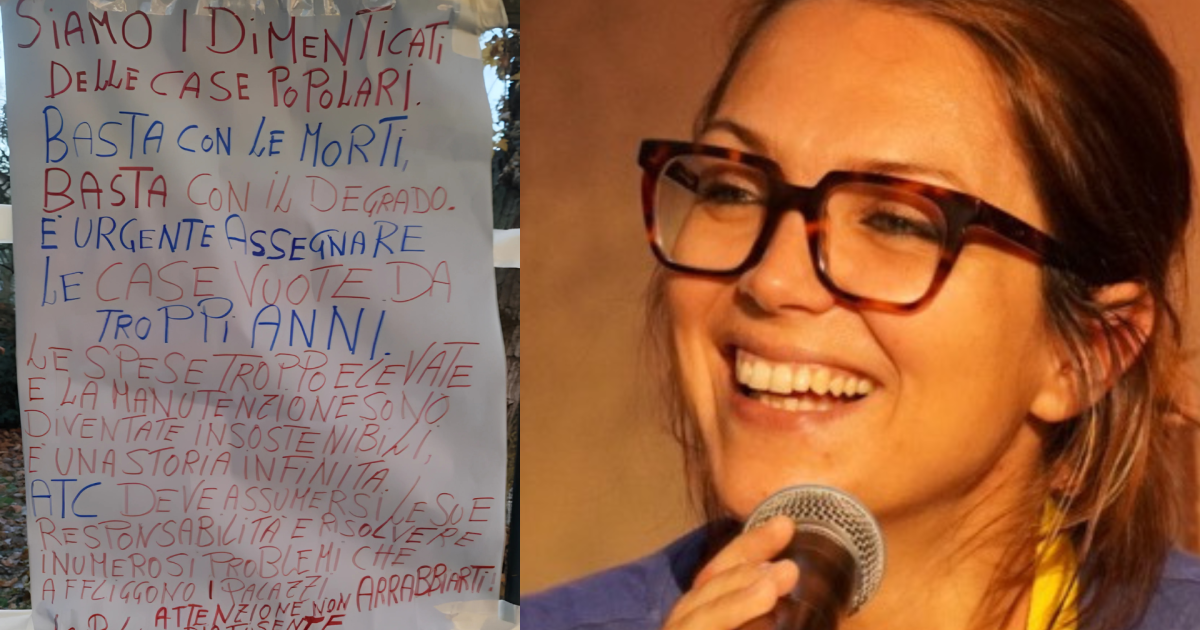 SIAMO I DIMENTICATI
DELLE CASE POPOLARI.
BASTA CON LE MORTI,
BASTA CON IL DEGRADO.
È URGENTE ASSEGNARE
LE CASE VUOTE DA
TROPPI ANNI.
LE SPESE TROPPO ELEVATE
E LA MANUTENZIONE SONO
DIVENTATE INSOSTENIBILI,
È UNA STORIA INFINITA.
ATC DEVE ASSUMERSI LE SUE
RESPONSABILITÀ E RISOLVERE
I NUMEROSI PROBLEMI CHE
AFFLIGGONO I PALAZZI.
ATTENZIONE NON ARRABBIARTI!